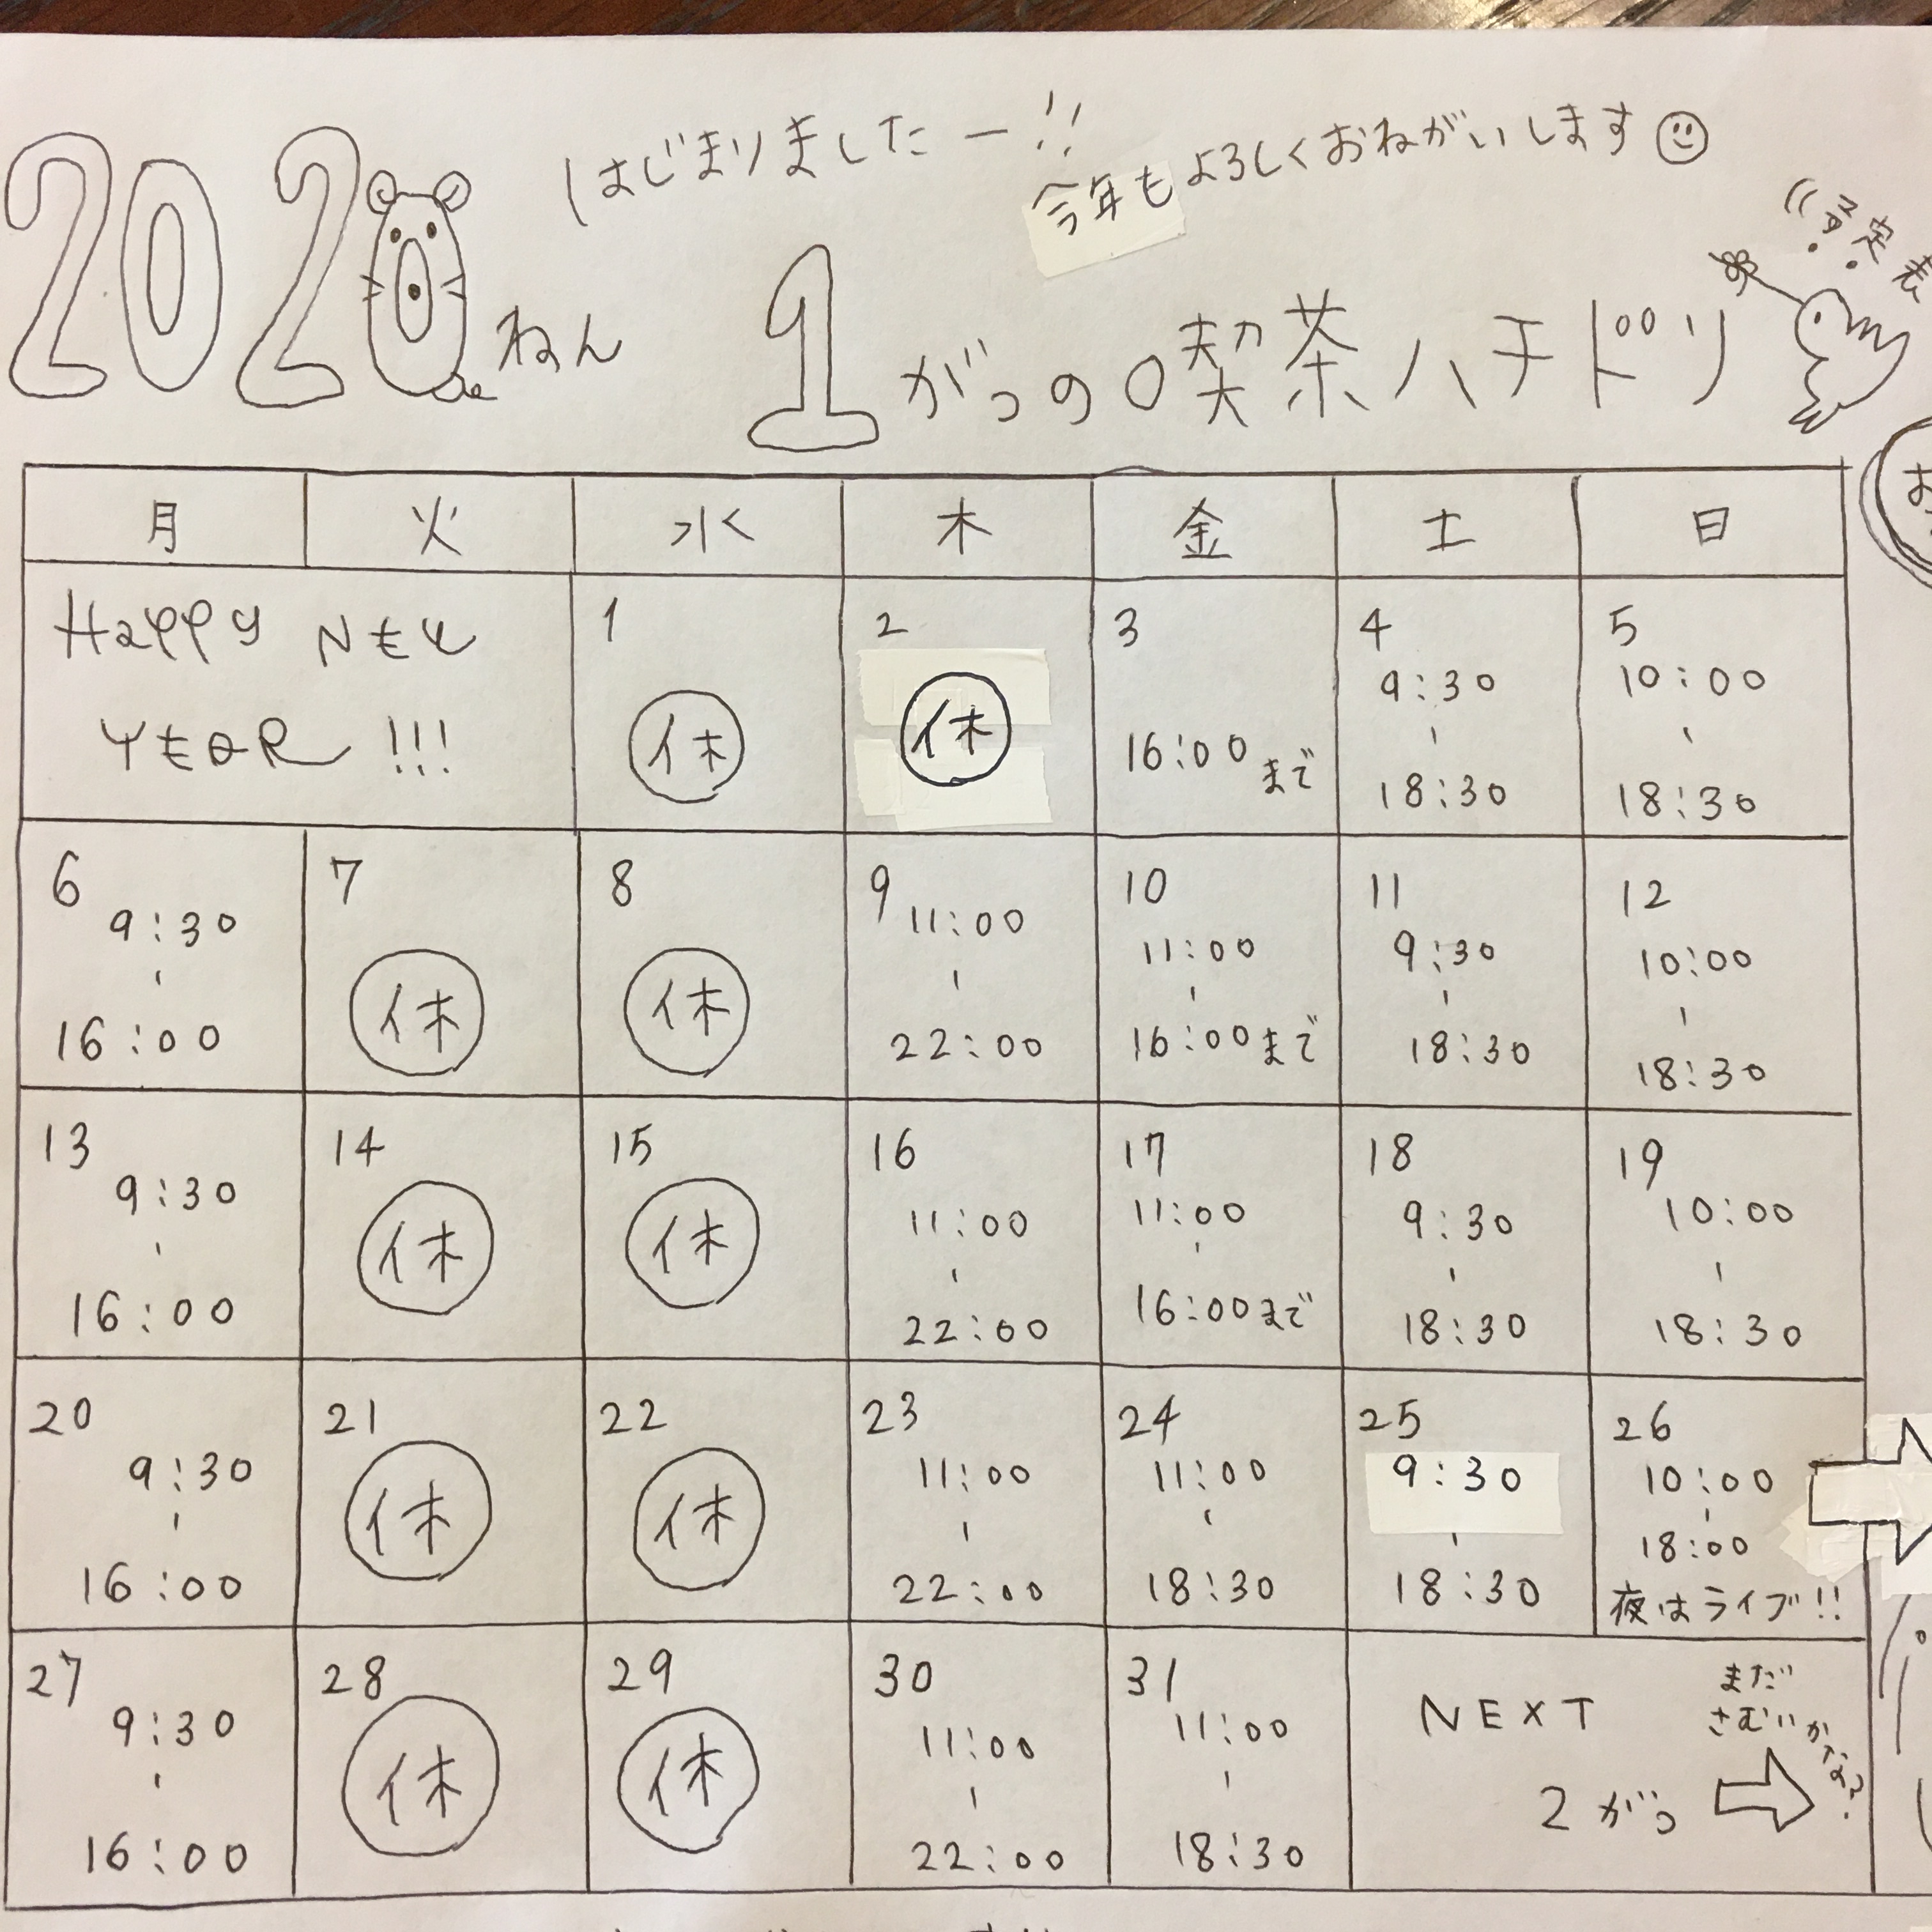 2020ねん
はじまりましたー!!
今年もよろしくおねがいします
予定表
1がつの喫茶ハチドリ
月 火 水 木 金 土 日
HAPPY NEW
YEAR !!!
1
休
2
休
3
16:00まで
4
9:30
-
18:30
5
10:00
-
18:30
6
9:30
-
16:00
7
休
8
休
9
11:00
-
22:00
10
11:00
-
16:00まで
11
9:30
-
18:30
12
10:00
-
18:30
13
9:30
-
16:00
14
休
15
休
16
11:00
-
22:00
17
11:00
-
16:00まで
18
9:30
-
18:30
19
10:00
-
18:30
20
9:30
-
16:00
21
休
22
休
23
11:00
-
22:00
24
11:00
-
18:30
25
9:30
-
18:30
26
10:00
-
18:00
夜はライブ!!
27
9:30
-
16:00
28
休
29
休
30
11:00
-
22:00
31
11:00
-
18:30
NEXT
2がつ
まだ
さむいかな?